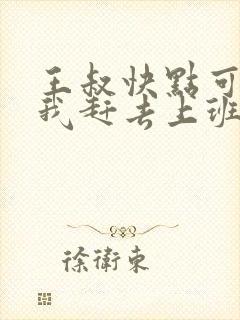 王叔快點可
我赶去上班
徐衛東